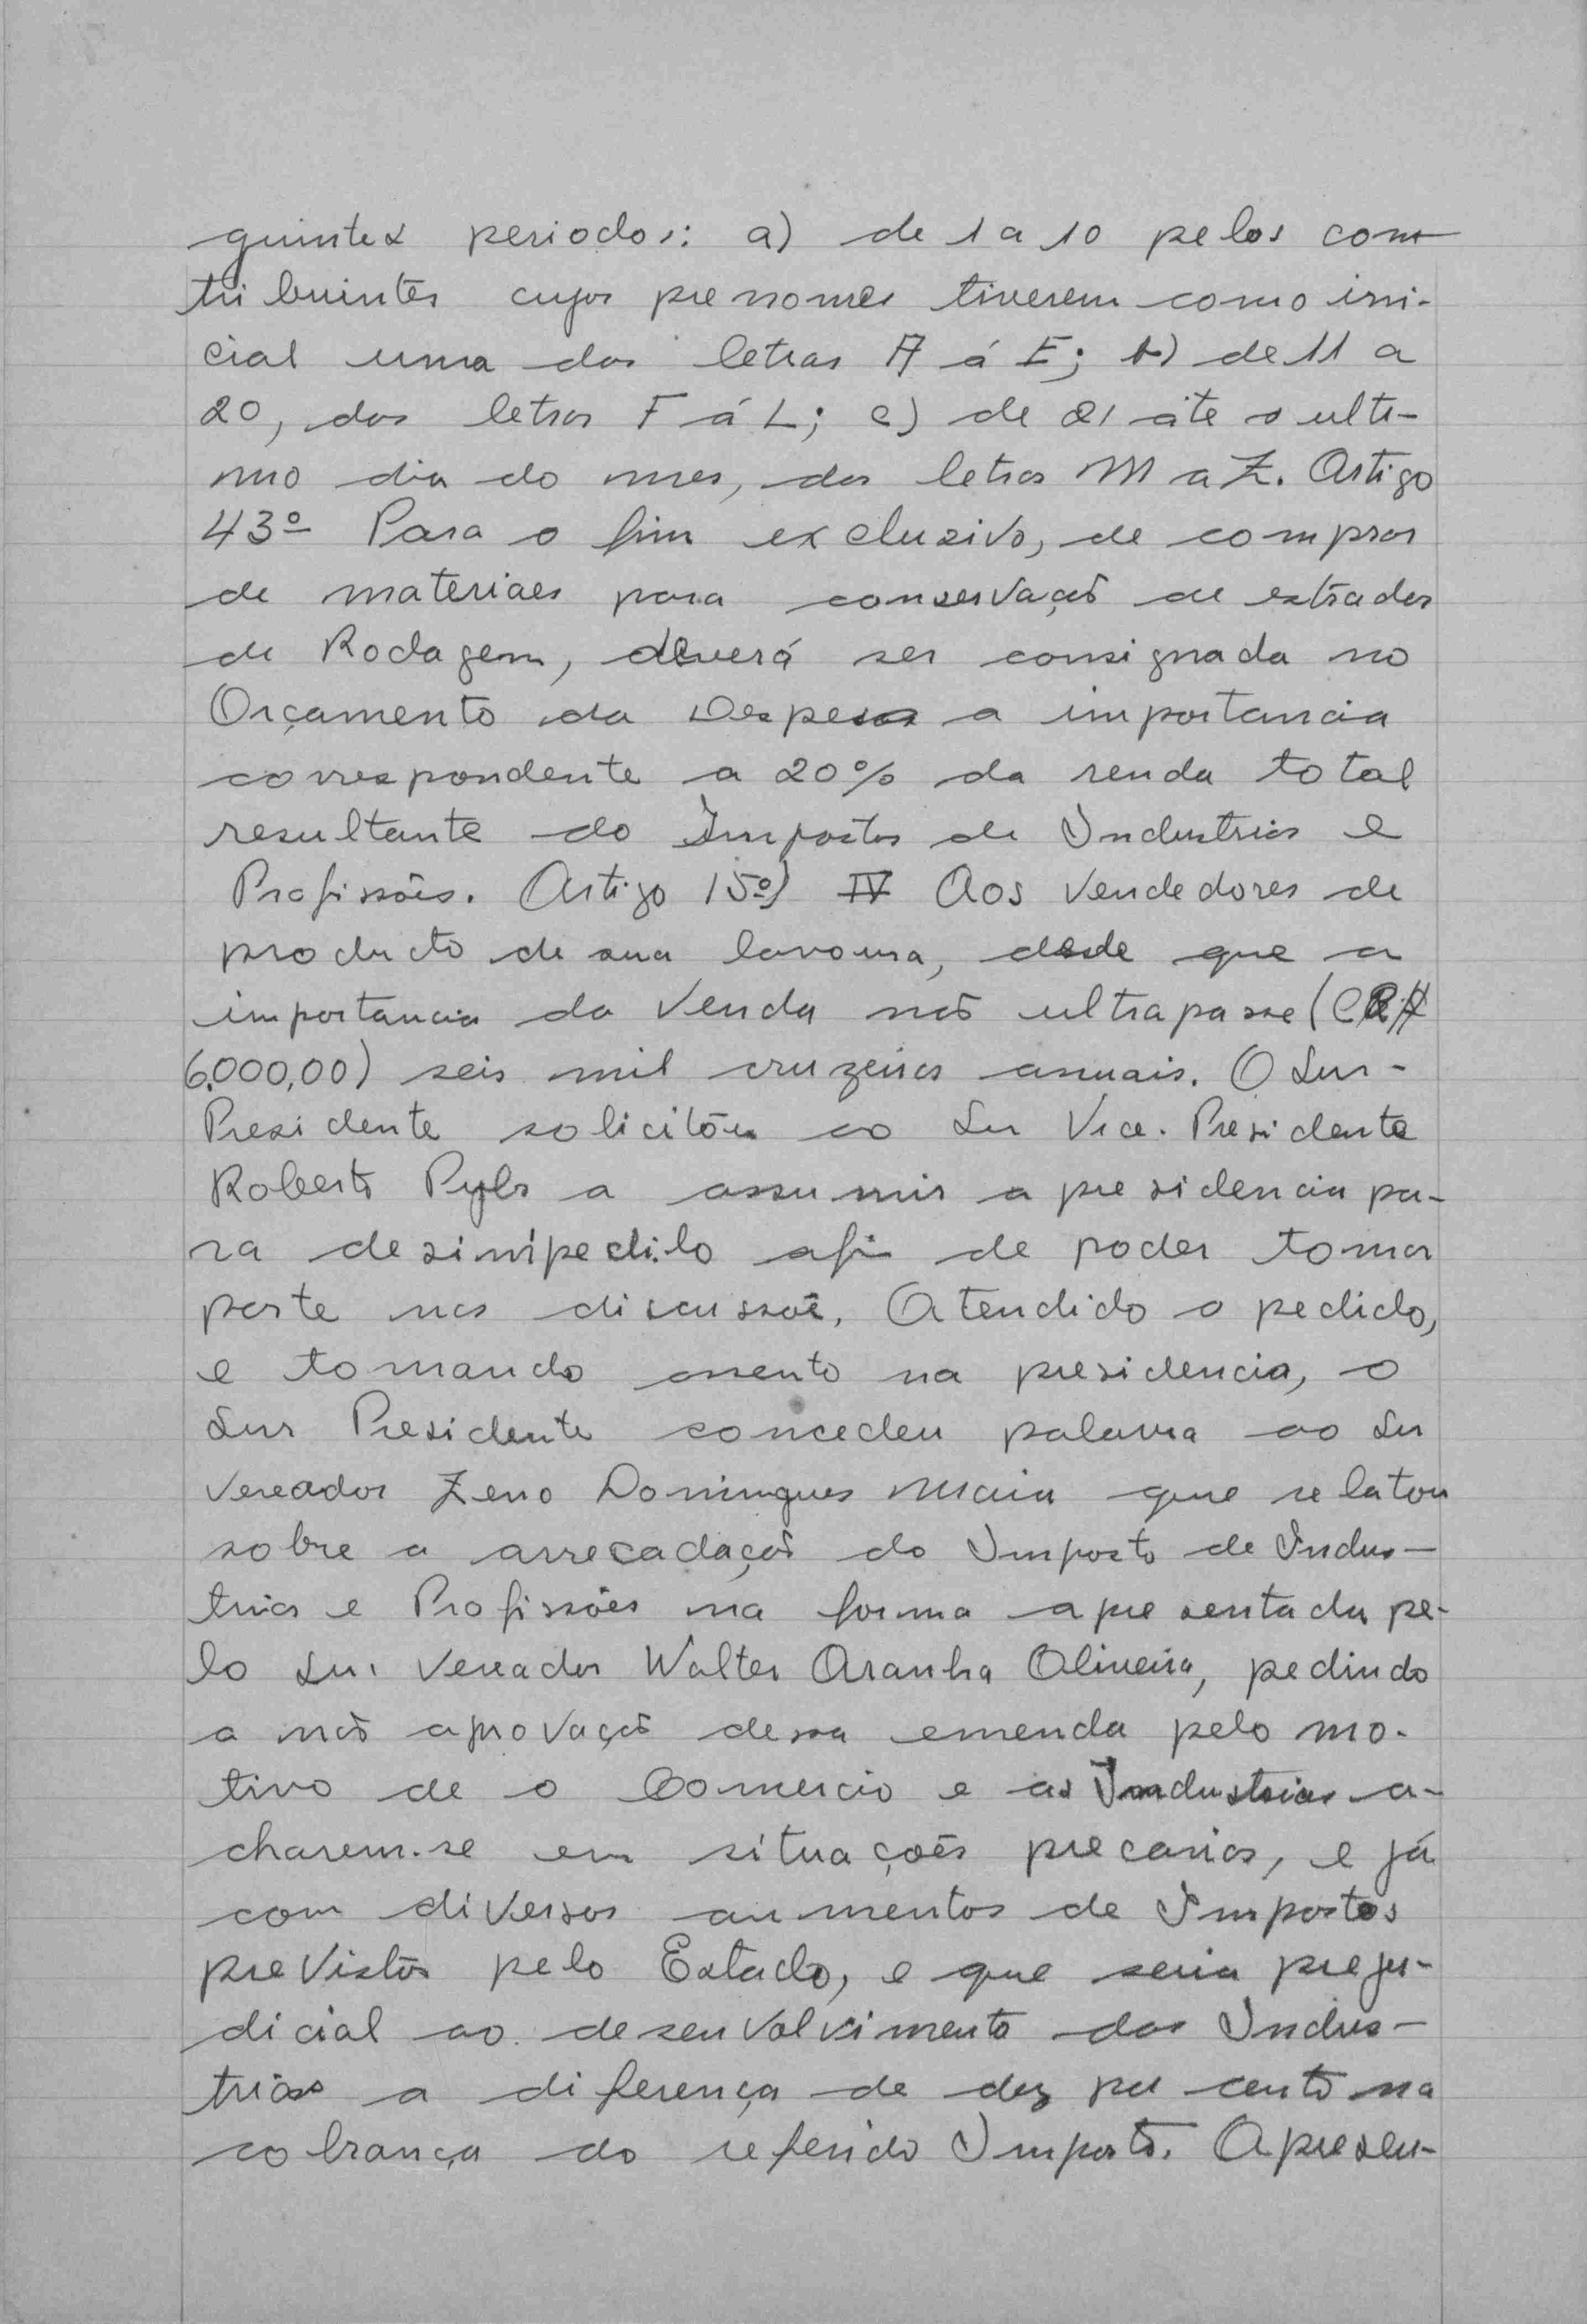 guintes periodos: a) de 1 a 10 pelos con
tribuintes cujos prenomes tiverem como ini-
cial uma das letras A á E; b) de 11 a
20, das letras F á L; c) de 21 áte o ulti-
mo dia do mes, das letras M a Z. Artigo
43º Para o fim exclusivo, de compras
de materiaes para conservação de estradas
de Rodagem, deverá ser consignada no
Orçamento da Despesa a importancia
correspondente a 20% da renda total
resultante do Impostos de Industrias e
Profissões. Artigo 15º) IV Aos vendedores de
producto de sua lavoura, desde que a
importancia da venda não ultrapasse (CR$
6.000,00) seis mil cruzeiros anuais. O Snr-
Presidente solicitou ao Snr Vice-Presidente
Roberto a assumir a presidencia pa-
ra desimpedi-lo afi de poder tomar
parte nas discussoẽ. Atendido o pedido,
e tomando assento na presidencia, o
Snr Presidente concedeu palavra ao Snr
vereador Zeno Domingues Maia que relatou
sobre a arrecadação do Imposto de Indus-
trias e Profissões na forma apresentada pe-
lo Snr. Vereador Walter Aranha Oliveira, pedindo
a não aprovação dessa emenda pelo mo-
tivo de o Comercio e as Industrias a-
charem-se em situações precarias, e já
com diversos aumentos de Impostos
previstos pelo Estado, e que seria preju-
dicial ao desenvolvimento das Indus-
trias a diferença de dez por cento na
cobrança do referido Imposto. Apresen-